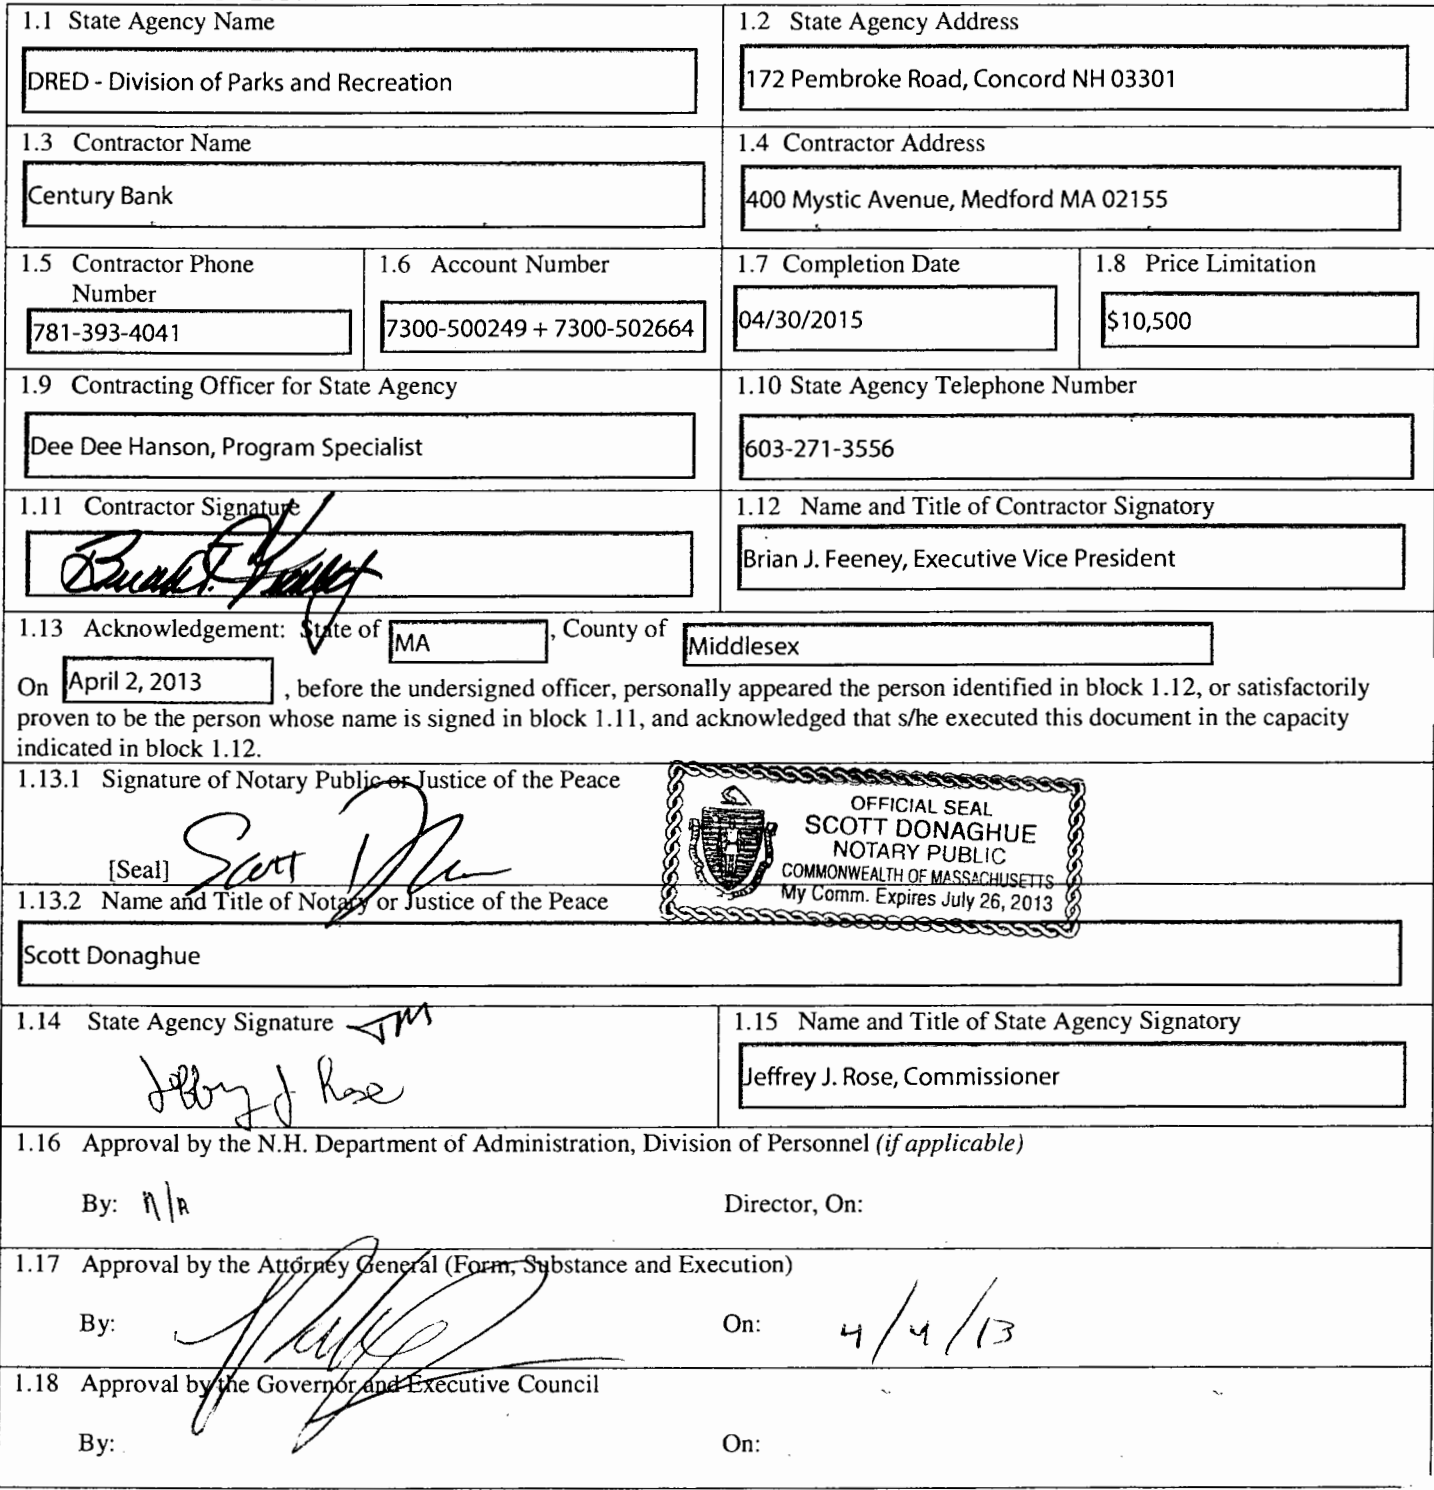 1.1 State Agency Name
DRED - Division of Parks and Recreation
1.2 State Agency Address
172 Pembroke Road, Concord NH 03301
1.3 Contractor Name
Century Bank
1.4 Contractor Address
400 Mystic Avenue, Medford MA 02155
1.5 Contractor Phone
Number
781-393-4041
1.6 Account Number
7300-500249 + 7300-502664
1.7 Completion Date
04/30/2015
1.8 Price Limitation
$10,500
1.9 Contracting Officer for State Agency
Dee Dee Hanson, Program Specialist
1.10 State Agency Telephone Number
603-271-3556
1.11 Contractor Signature
1.12 Name and Title of Contractor Signatory
Brian J. Feeney, Executive Vice President
1.13 Acknowledgement: State of MA, County of Middlesex
On April 2, 2013, before the undersigned officer, personally appeared the person identified in block 1.12, or satisfactorily
proven to be the person whose name is signed in block 1.11, and acknowledged that s/he executed this document in the capacity
indicated in block 1.12.
1.13.1 Signature of Notary Public or Justice of the Peace
[Seal] Scott
OFFICIAL SEAL
SCOTT DONAGHUE
NOTARY PUBLIC
COMMONWEALTH OF MASSACHUSETTS
My Comm. Expires July 26, 2013
1.13.2 Name and Title of Notary or Justice of the Peace
Scott Donaghue
1.14 State Agency Signature
Jeffrey J Rose
1.15 Name and Title of State Agency Signatory
Jeffrey J. Rose, Commissioner
1.16 Approval by the N.H. Department of Administration, Division of Personnel (if applicable)
By: n/a Director, On:
1.17 Approval by the Attorney General (Form, Substance and Execution)
By: On: 4/4/13
1.18 Approval by the Governor and Executive Council
By: On: